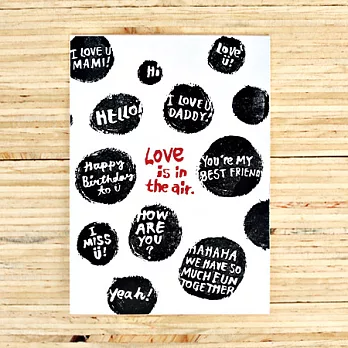 I LOVE U
MAMI!
Hi
LOVE
Ü!
HELLO!
I LOVE U
DADDY!
Love
is in
the air.
Happy
Birthday
to Ü
YOU'RE MY
BEST FRIEND
I
MISS
Ü!
HOW
ARE
YOU
?
HAHAHA
WE HAVE SO
MUCH FUN
TOGETHER
yeah!